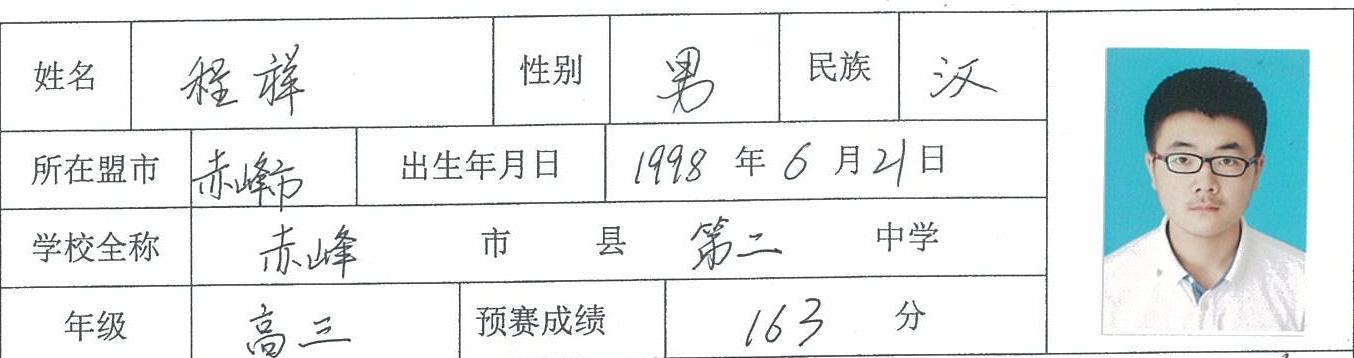 姓名 程祥 性别 男 民族 汉
所在盟市 赤峰市 出生年月日 1998 年 6 月 21 日
学校全称 赤峰 市 县 第二 中学
年级 高三 预赛成绩 163 分